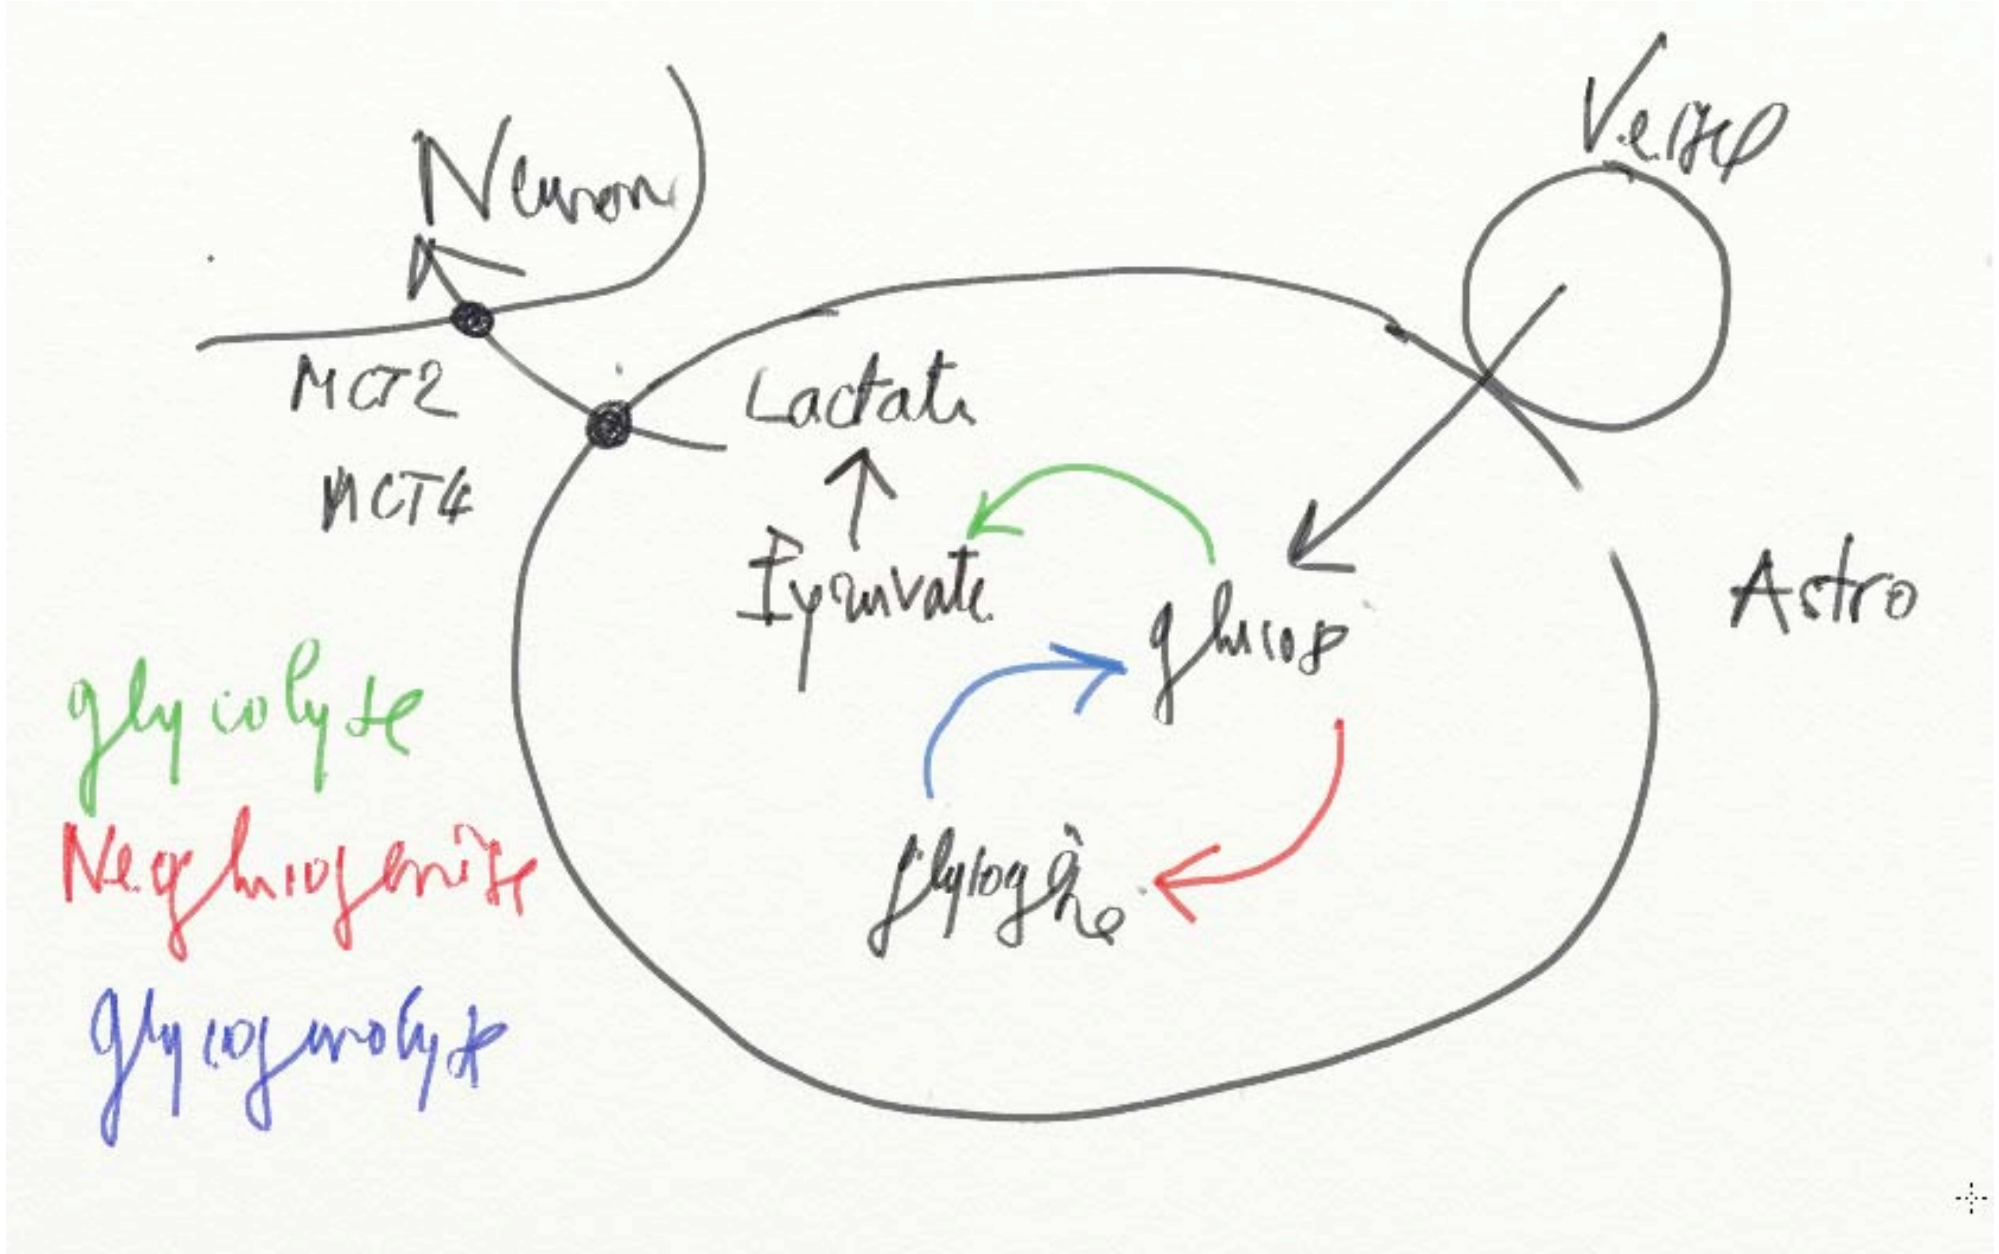 Neuron
Vessel
MCT2
Lactate
MCT4
Pyruvate
glucose
Astro
glycolyse
Neoglucogenèse
glycogène
glycogenolyse